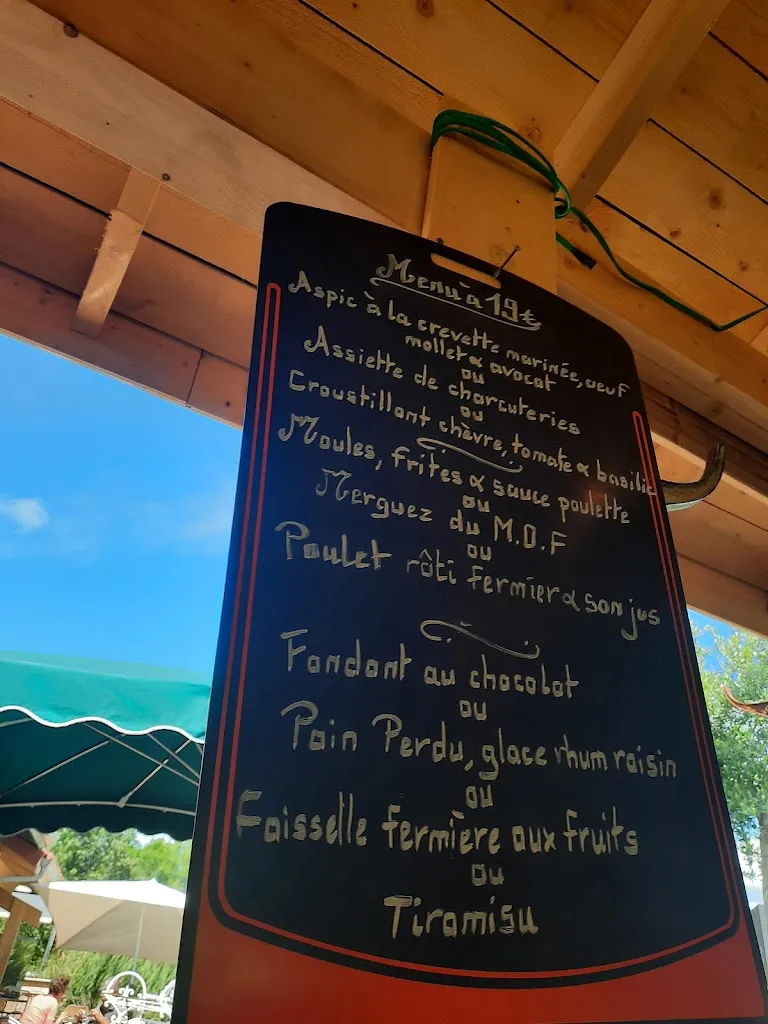 Menu à 19€
Aspic à la crevette marinée, oeuf
mollet & avocat
ou
Assiette de charcuteries
ou
Croustillant chèvre, tomate & basilic
Moules, frites & sauce poulette
ou
Merguez du M.O.F
ou
Poulet rôti fermier & son jus
Fondant au chocolat
ou
Pain Perdu, glace rhum raisin
ou
Faisselle fermière aux fruits
ou
Tiramisu